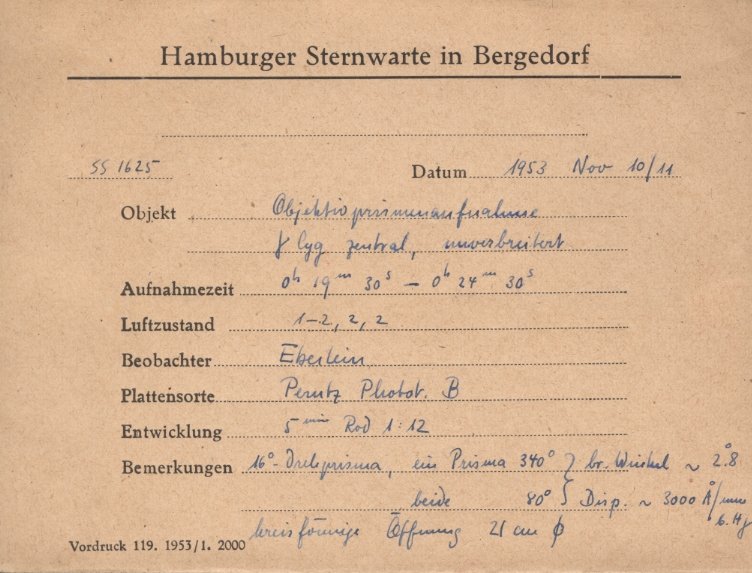 Hamburger Sternwarte in Bergedorf
SS 1625 Datum 1953 Nov 10/11
Objekt Objektivprismenaufnahme
γ Cyg zentral, unverbreitert
Aufnahmezeit 0h 19m 30s — 0h 24m 30s
Luftzustand 1–2, 2, 2
Beobachter Eberlein
Plattensorte Perutz Phobot. B
Entwicklung 5 min Rod 1:12
Bemerkungen 16°-Drehprisma, ein Prisma 340° } br. Winkel ~ 2°.8
beide 80° } Disp. ~ 3000 Å/mm
b. Hγ
kreisförmige Öffnung 21 cm ϕ
Vordruck 119. 1953/1. 2000